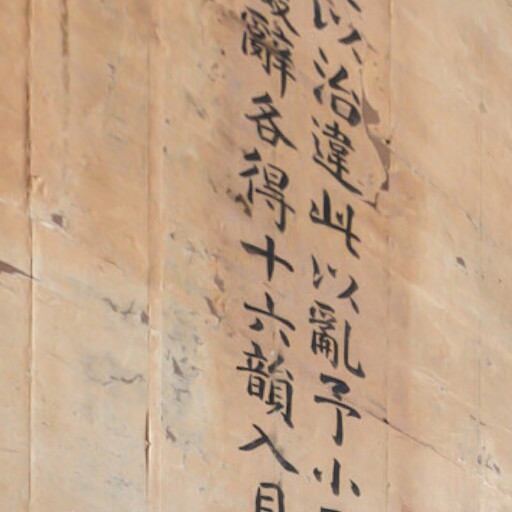 以治違此以亂予小
辭各得十六韻入